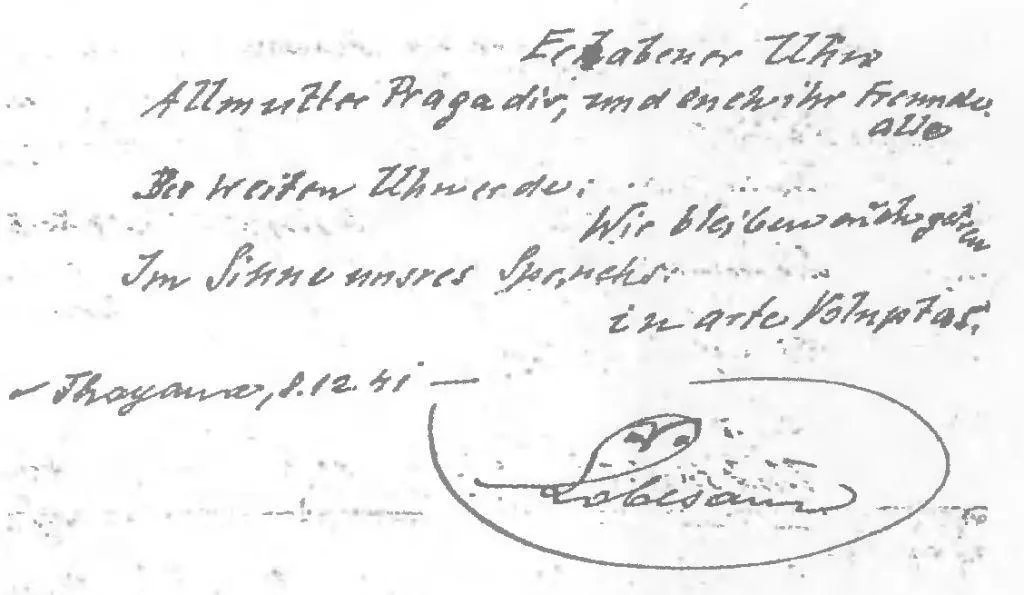 Erhabener Uhu
Allmutter Praga dir, und euch ihr Freunde
alle
Der weiten Uhuerde:
Wir bleiben euch getreu
Im Sinne unsres Spruchs:
in arte Voluptas.
8.12.41
Lobesam